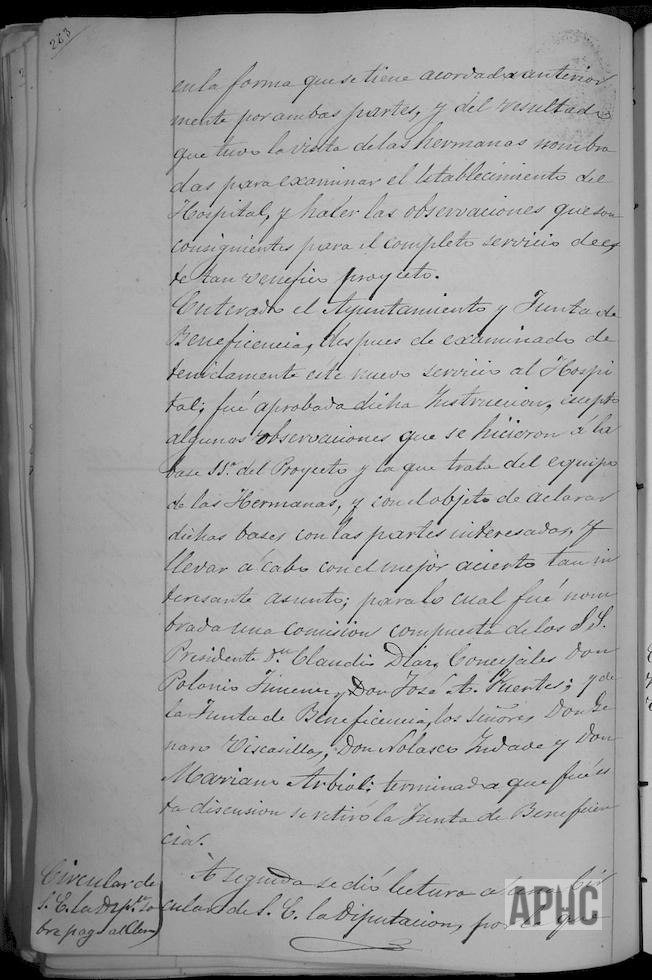 283
en la forma que se tiene acordada anterior
mente por ambas partes, y del resultado
que tuvo la visita de las hermanas nombra
das para examinar el Establecimiento del
Hospital, y hacer las observaciones que son
consiguientes para el completo servicio de es
te tan venefico proyecto.
Enterado el Ayuntamiento y Junta de
Beneficencia, despues de examinado de
tenidamente este nuevo servicio al Hospi
tal; fué aprobada dicha Instruccion, esepto
algunas observaciones que se hicieron á la
base 11ª del Proyecto y la que trata del equipo
de las Hermanas, y con el objeto de aclarar
dichas bases con las partes interesadas, y
llevar á cabo con el mejor acierto tan in
teresante asunto; para lo cual fué nom
brada una comision compuesta de los S.S.
Presidente Dn Claudio Diaz, Concejales Don
Polonio Jimenez y Don José A. Fuertes; y de
la Junta de Beneficencia, los señores Don Ge
naro Viscasillas, Don Nolasco y Don
Mariano Arbiol; terminada que fué es
ta discusion se retiró la Junta de Beneficen
cia.
Circular de
S. E. la Dipn so
bre pago al Clero
A seguida se dió lectura a una Cir
cular de S. E. la Diputacion, por la que
APHC